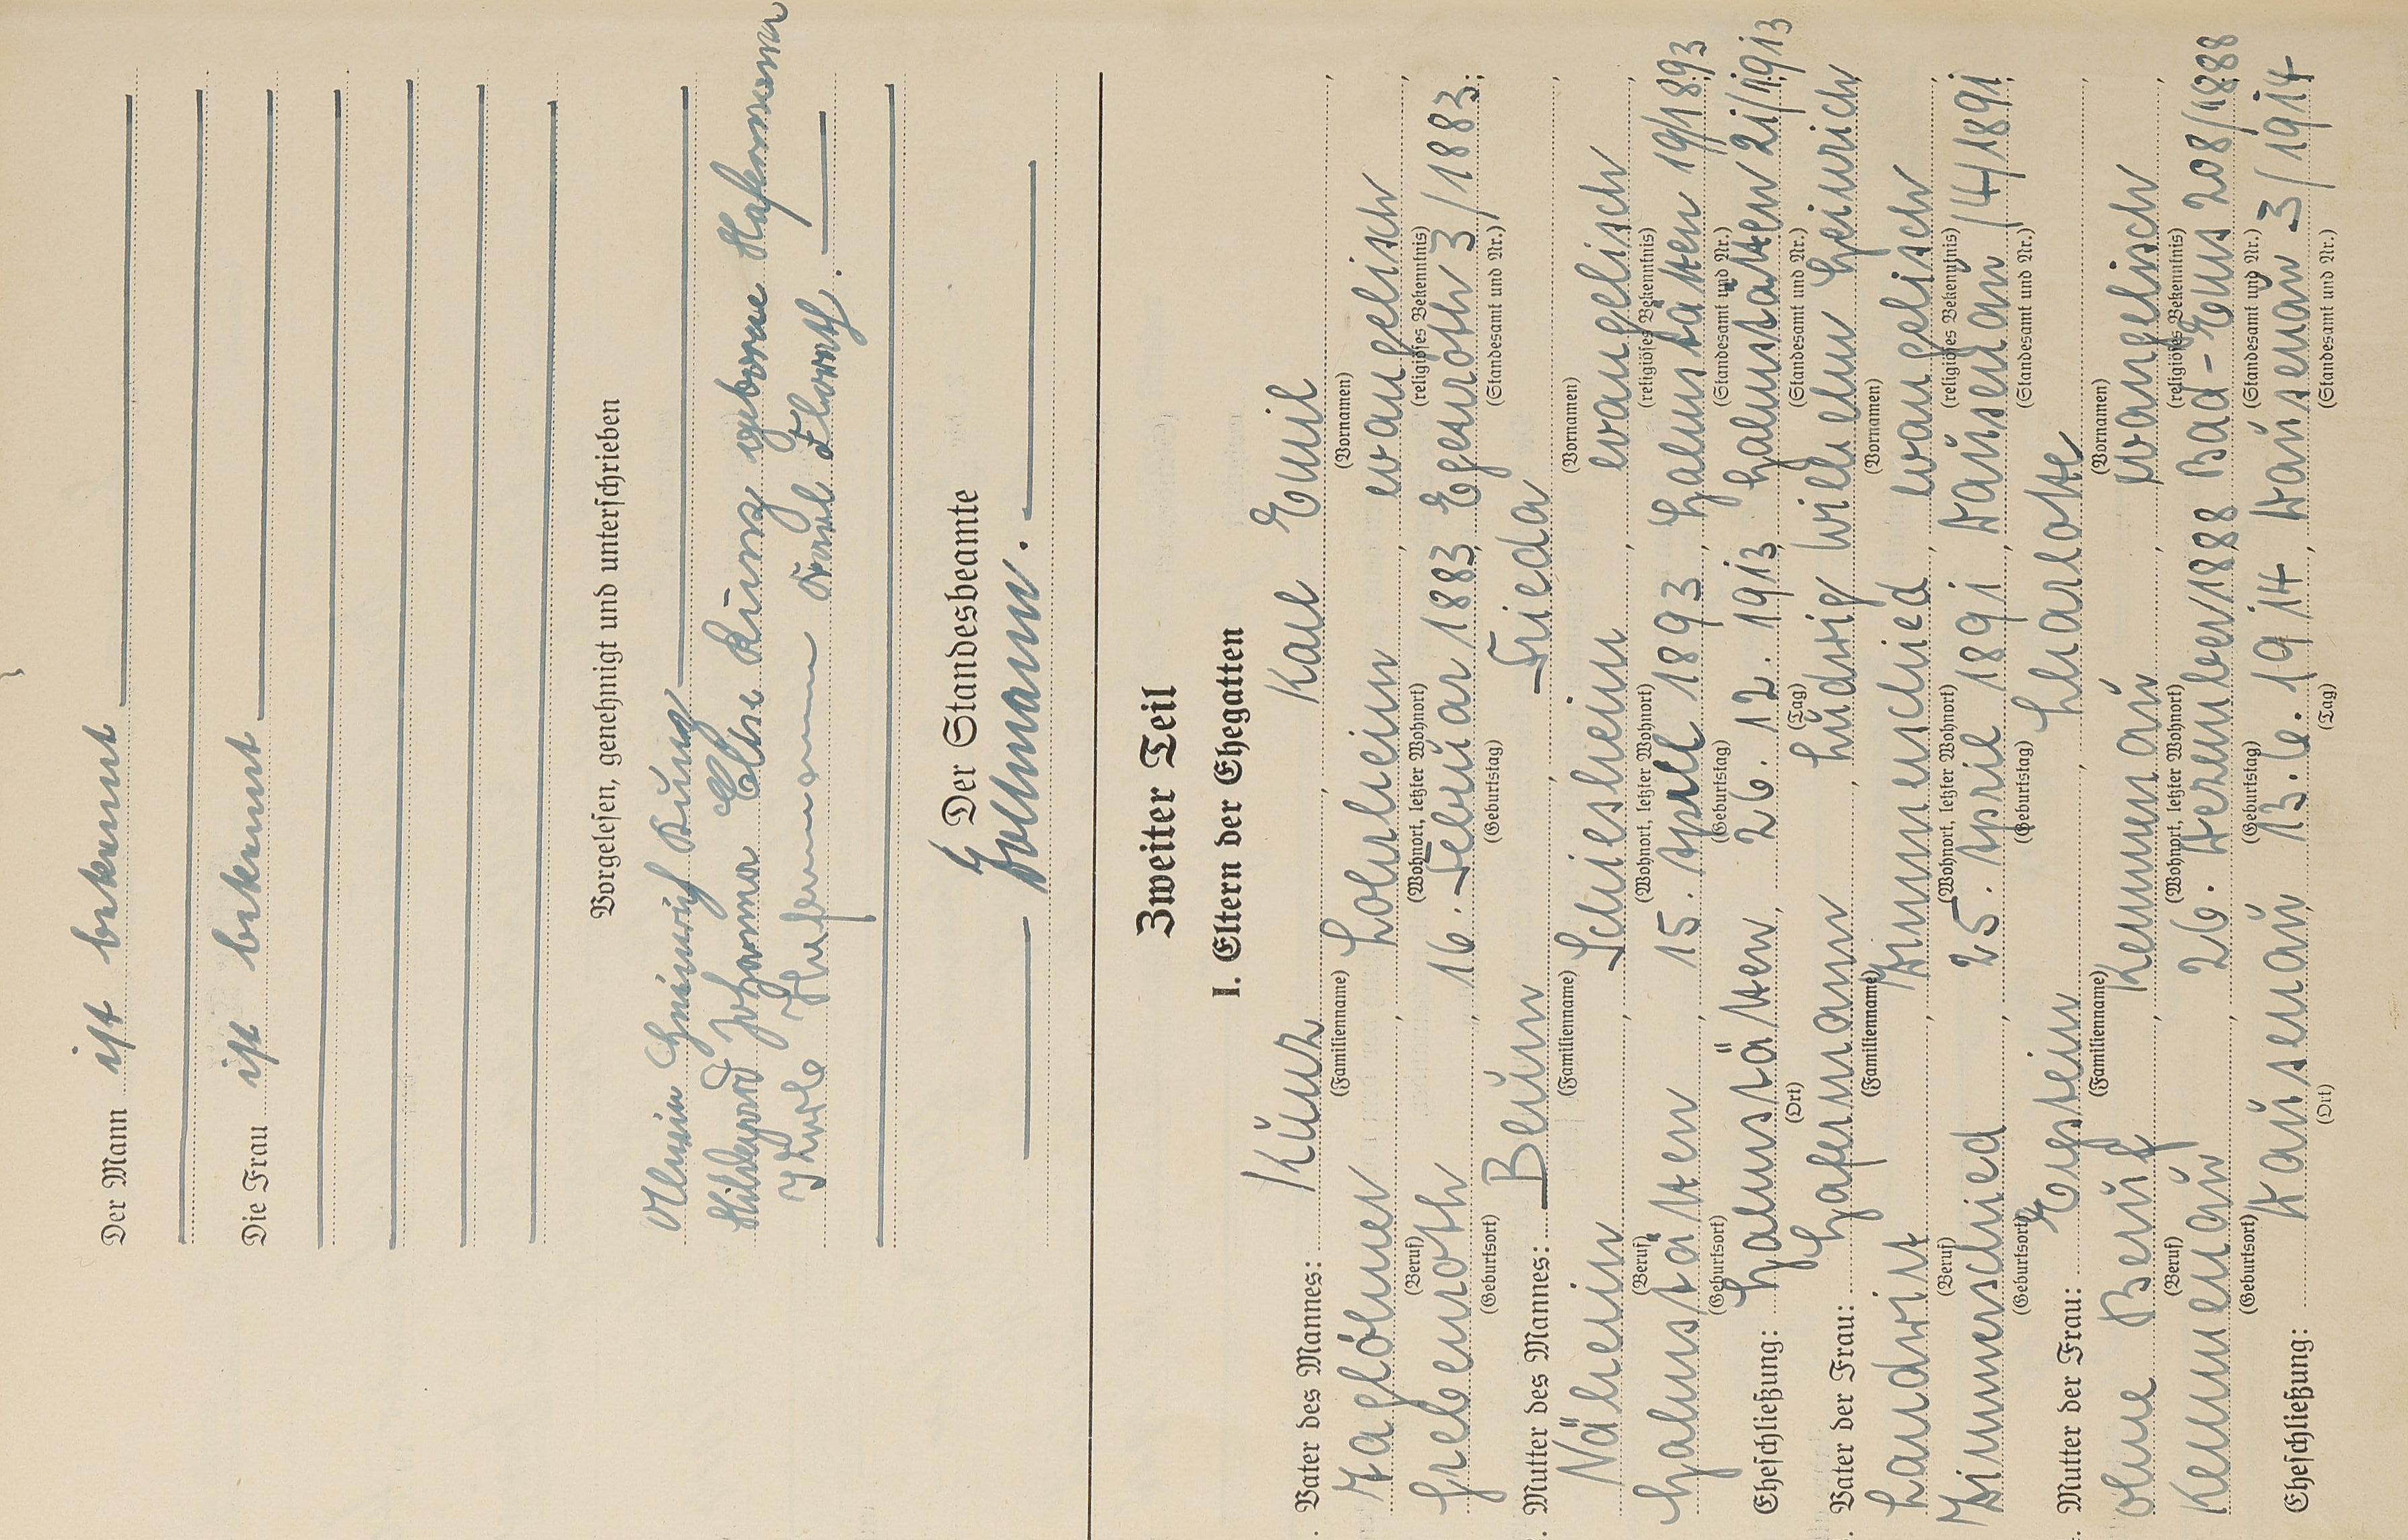 Der Mann ist bekannt
Die Frau ist bekannt
Vorgelesen, genehmigt und unterschrieben
Heinrich Künz
Hildegard Johanna Else Künz geborene Hafermann
Hafermann Karl Flor
Der Standesbeamte
Zweiter Teil
I. Eltern der Ehegatten
. Vater des Mannes: Künz Karl Emil
(Familienname) (Vornamen)
Taglöhner, Lohrheim, evangelisch
(Beruf) (Wohnort, letzter Wohnort) (religiöses Bekenntnis)
Grebenroth, 16. Februar 1883, Egenroth 3/1883;
(Geburtsort) (Geburtstag) (Standesamt und Nr.)
. Mutter des Mannes: Frieda
(Familienname) (Vornamen)
Näherin, Schiesheim, evangelisch
(Beruf) (Wohnort, letzter Wohnort) (religiöses Bekenntnis)
Hahnstätten, 15. April 1893, Hahnstätten 19/1893
(Geburtsort) (Geburtstag) (Standesamt und Nr.)
Eheschließung: Hahnstätten, 26. 12. 1913, Hahnstätten 21/1913
(Ort) (Tag) (Standesamt und Nr.)
. Vater der Frau: Hafermann, Ludwig Wilhelm Heinrich,
(Familienname) (Vornamen)
Landwirt, Zimmerschied, evangelisch
(Beruf) (Wohnort, letzter Wohnort) (religiöses Bekenntnis)
Zimmerschied, 25. April 1891, Dausenau 14/1891;
(Geburtsort) (Geburtstag) (Standesamt und Nr.)
. Mutter der Frau: Eugstein, Charlotte,
(Familienname) (Vornamen)
ohne Beruf, Kemmenau, evangelisch,
(Beruf) (Wohnort, letzter Wohnort) (religiöses Bekenntnis)
Kemmenau, 26. Dezember 1888 Bad-Ems 208/1888
(Geburtsort) (Geburtstag) (Standesamt und Nr.)
Eheschließung: Dausenau, 13. 6. 1914, Dausenau 3/1914
(Ort) (Tag) (Standesamt und Nr.)